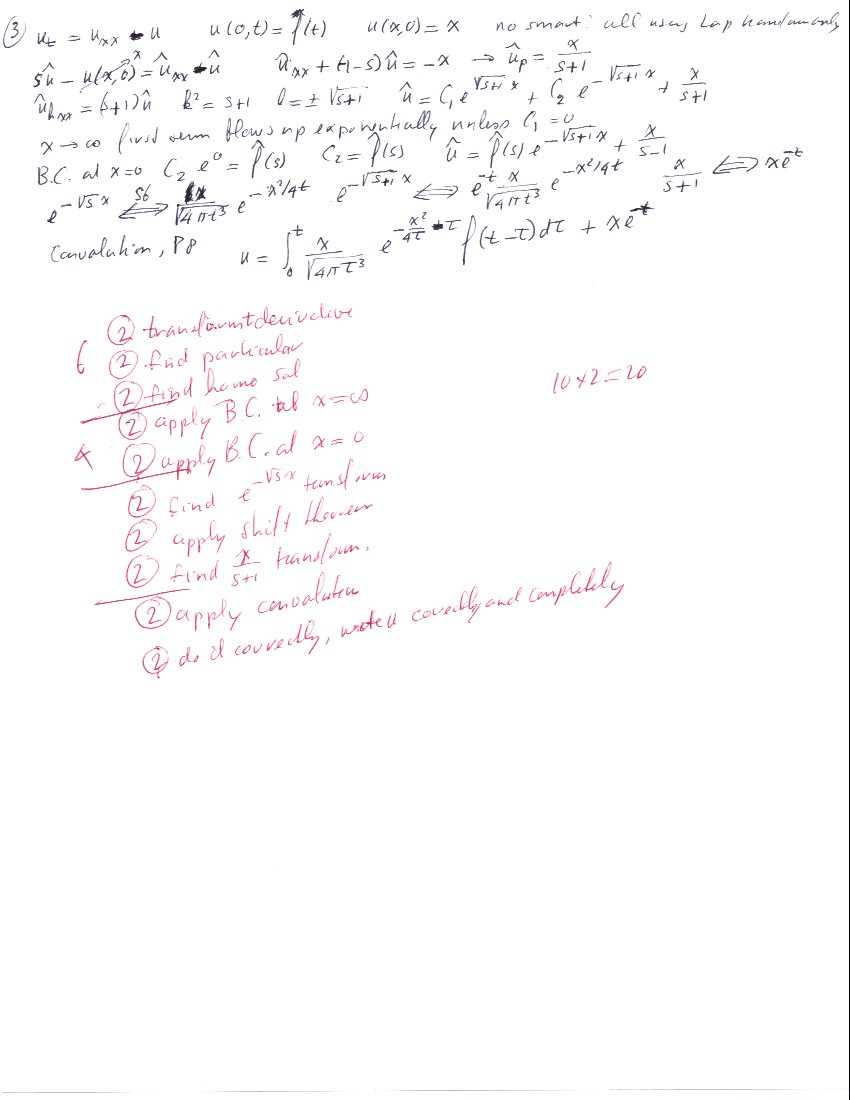 ③ u_t = u_xx - u u(0,t) = f(t) u(x,0) = x no smart: all using Lap handom only
sû - u(x,0)^x = û_xx - û û_xx + (-1-s)û = -x → û_p = x/(s+1)
û_hxx = (s+1)û k² = s+1 l = ±√(s+1) û = C₁e^(√(s+1) x) + C₂e^(-√(s+1) x) + x/(s+1)
x → ∞ first term blows up exponentially unless C₁ = 0
B.C. at x=0 C₂e⁰ = f̂(s) C₂ = f̂(s) û = f̂(s)e^(-√(s+1) x) + x/(s-1)
e^(-√s x) ⟺^S6 x/√(4πt³) e^(-x²/4t) e^(-√(s+1) x) ⟺ e^(-t) x/√(4πt³) e^(-x²/4t) x/(s+1) ⟺ xe^(-t)
Convolution, P8 u = ∫₀^t x/√(4πτ³) e^(-x²/4τ - τ) f(t-τ)dτ + xe^(-t)
② transform t derivative
6 ② find particular
② find homo sol
10×2=20
② apply B.C. at x=∞
4 ② apply B.C. at x=0
② find e^(-√s x) transform
② apply shift theorem
② find x/(s+1) transform.
② apply convolution
② do it correctly, write u correctly and completely